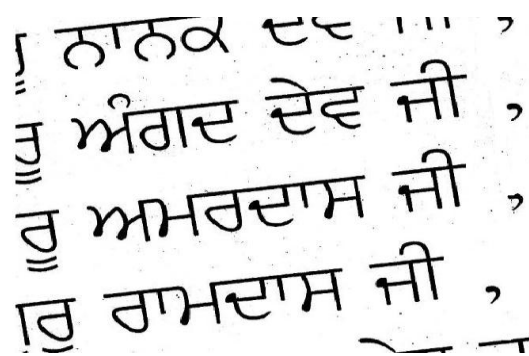 ਨਾਨਕ ਦੇਵ ਜੀ ,
ਰੂ ਅੰਗਦ ਦੇਵ ਜੀ ,
ਰੂ ਅਮਰਦਾਸ ਜੀ ,
ਰੂ ਰਾਮਦਾਸ ਜੀ ,